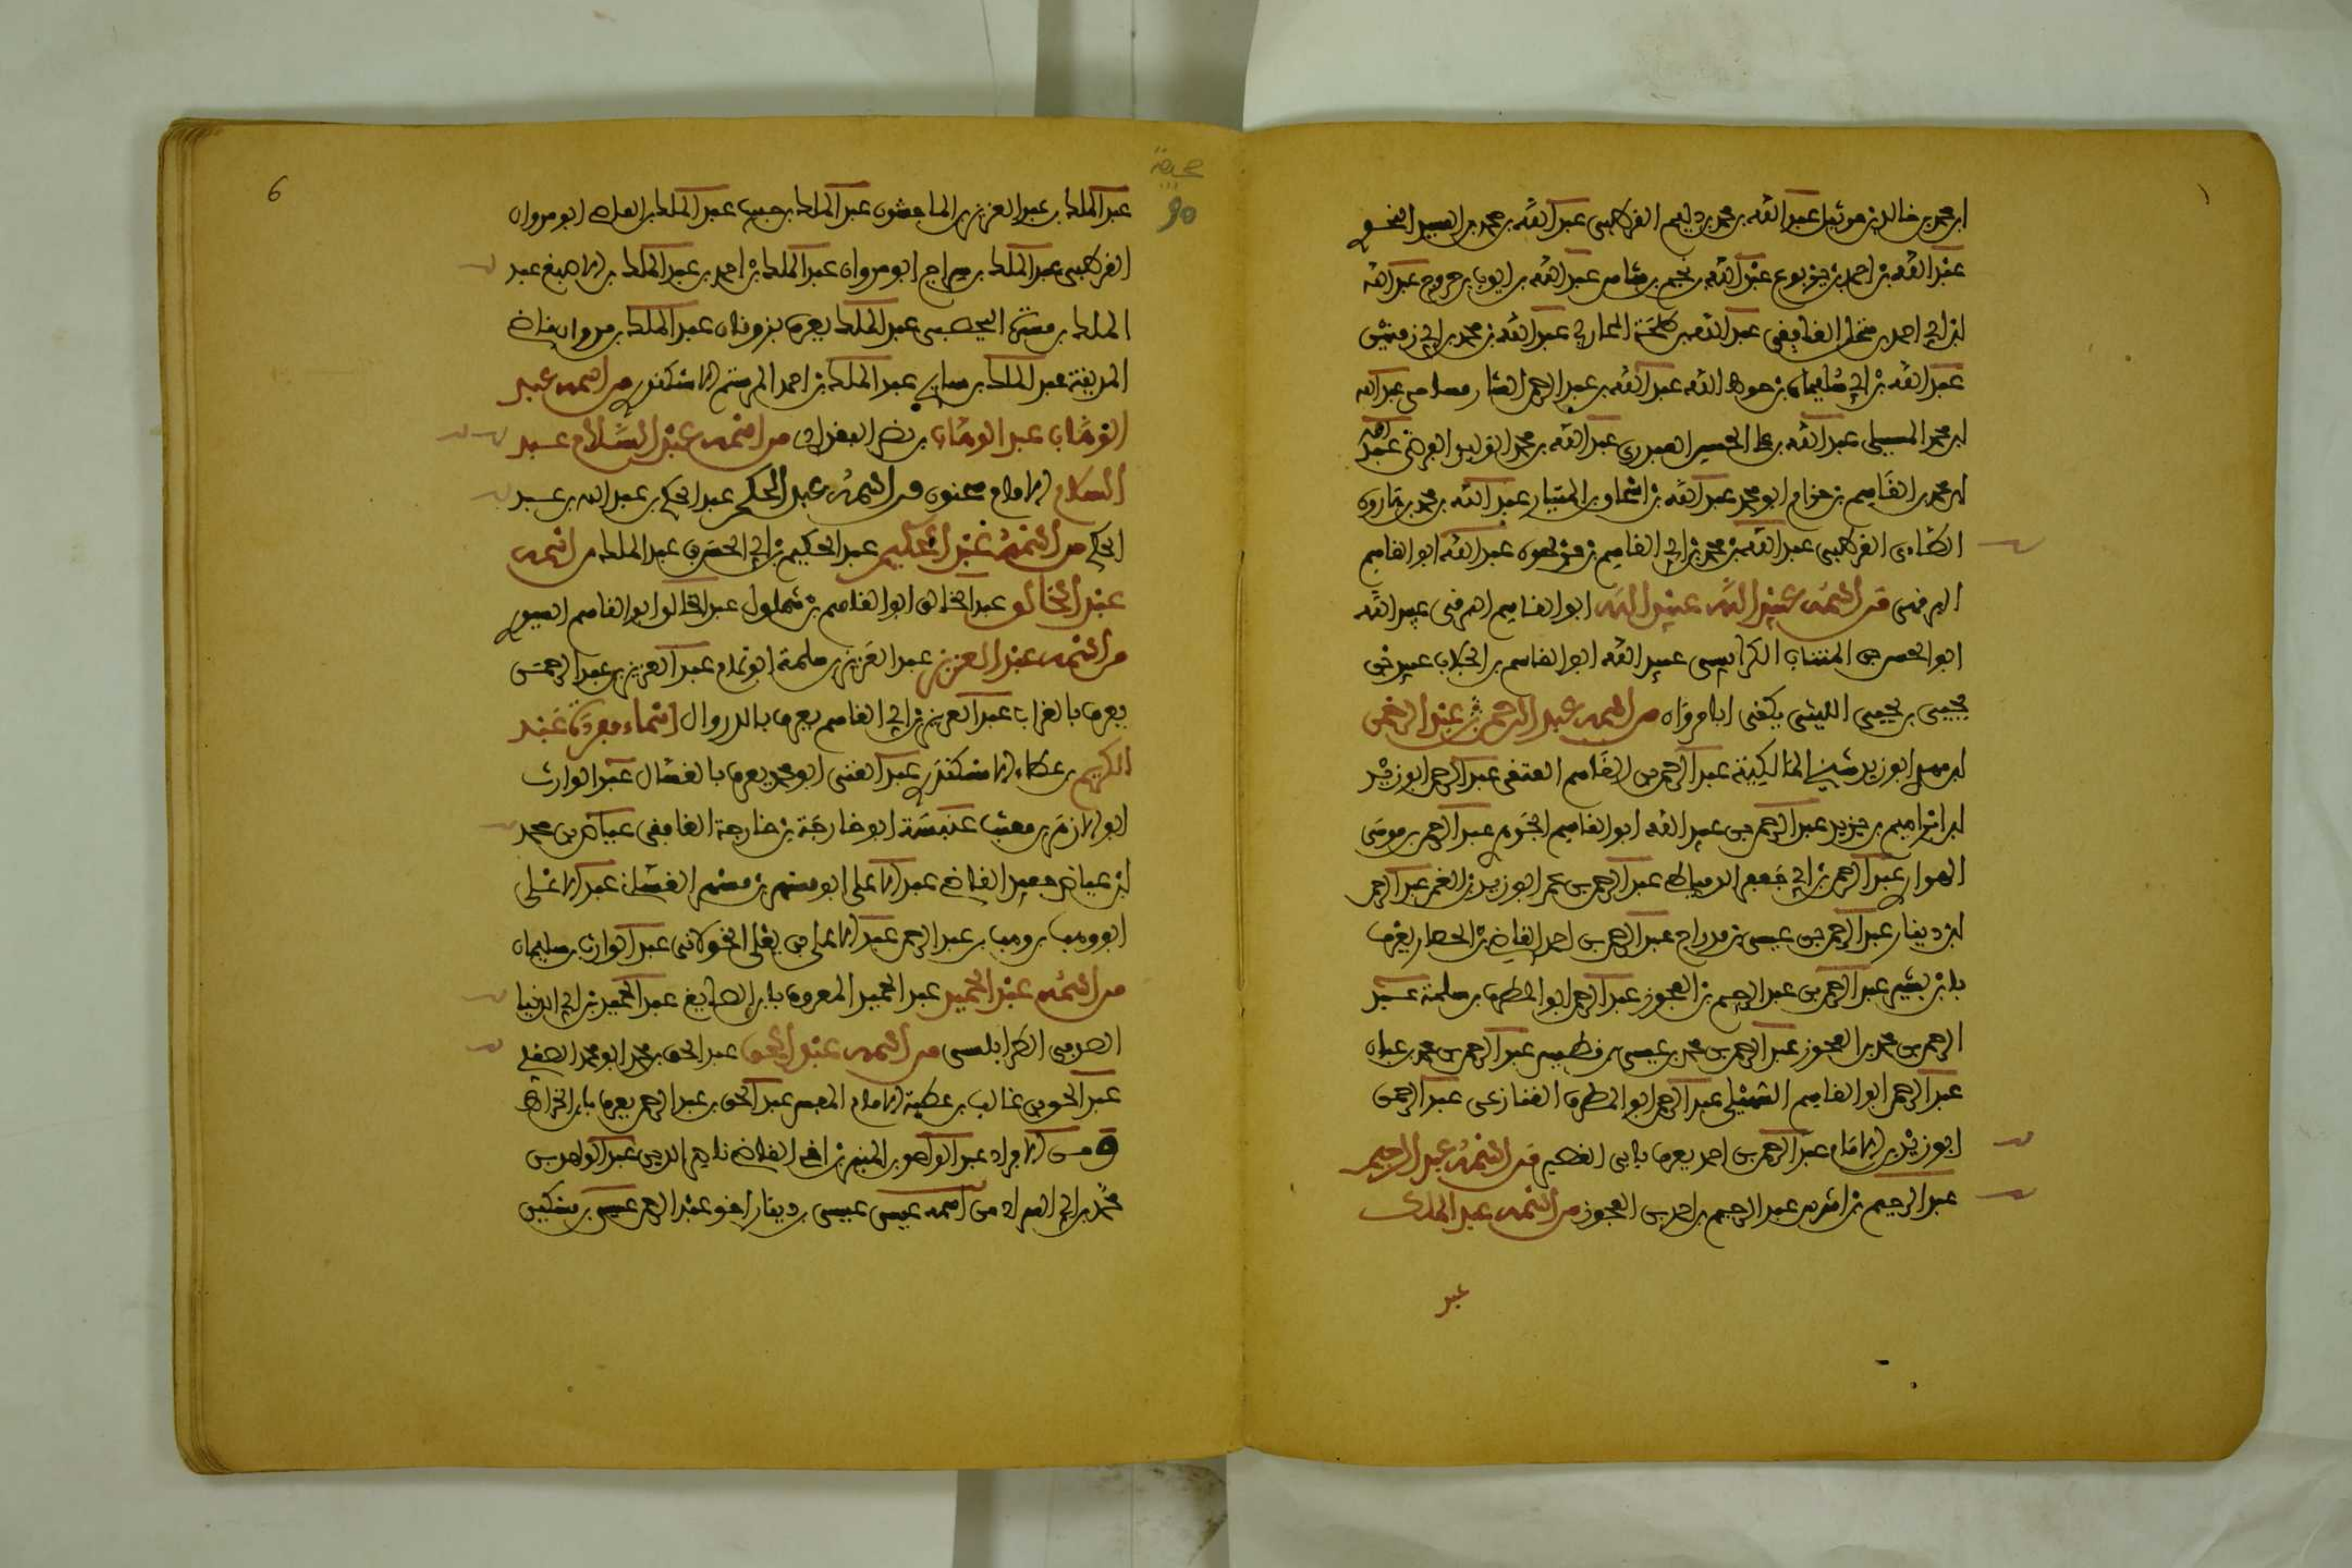 ابن محمد بن خالد بن مرتيل عبد الله بن محمد بن دليم القرطبي عبد الله بن محمد بن السيد النحوي
عبد الله بن احمد بن يربوع عبد الله بن نجيم بن شاس عبد الله بن ايوب بن خروج عبد الله
ابن ابي احمد بن منخل الغافقي عبد الله بن طلحة المحاربي عبد الله بن محمد بن ابي زمنين
عبد الله بن ابي سليمان بن حوط الله عبد الله بن عبد الرحمن الشارمساحي عبد الله
ابن محمد المسيلي عبد الله بن ابي الحسين العبدري عبد الله بن محمد ابو الوليد الفرضي عبد الله
ابن محمد بن القاسم بن حزام ابو محمد عبد الله بن اسحاق بن التبان عبد الله بن محمد بن هارون
الطائي القرطبي عبد الله بن محمد بن ابي القاسم بن فرحون عبد الله ابو القاسم
البرقي من اسمه عبيد الله عبيد الله ابو القاسم البرقي عبيد الله
ابو الحسن بن المنتاب الكرابيسي عبيد الله ابو القاسم بن الجلاب عبيد الله بن
يحيى بن يحيى الليثي يكنى ابا مروان من اسمه عبد الرحمن عبد الرحمن
ابن مهدي ابو زيد شيخ المالكية عبد الرحمن بن القاسم العتقي عبد الرحمن ابو زيد
ابن ابراهيم بن يزيد عبد الرحمن بن عبد الله ابو القاسم الجوهري عبد الرحمن بن موسى
الهواري عبد الرحمن بن ابي جعفر الدمياطي عبد الرحمن بن عمر ابو زيد بن الغمر عبد الرحمن
ابن دينار عبد الرحمن بن عيسى بن مدراج عبد الرحمن بن احمد القاضي بن الحصار يعرف
بابن بشير عبد الرحمن بن عبد الرحيم بن العجوز عبد الرحمن ابو المطرف بن سلمة عبد
الرحمن بن محمد بن العجوز عبد الرحمن بن محمد بن عيسى بن فطيس عبد الرحمن بن محمد بن عتاب
عبد الرحمن ابو القاسم السهيلي عبد الرحمن ابو المطرف القنازعي عبد الرحمن
ابو زيد بن الامام عبد الرحمن بن احمد يعرف بابن القصير من اسمه عبد الرحيم
عبد الرحيم بن اشرس عبد الرحيم بن احمد بن العجوز من اسمه عبد الملك
عبد
6
90
عبد الملك بن عبد العزيز بن الماجشون عبد الملك بن حبيب عبد الملك بن العاصي ابو مروان
القرطبي عبد الملك بن سراج ابو مروان عبد الملك بن احمد بن عبد الملك بن الاصبغ عبد
الملك بن مسرة اليحصبي عبد الملك يعرف بزونان عبد الملك بن مروان قاضي
المدينة عبد الملك بن عبد الملك بن احمد الاسكندري من اسمه عبد
الوهاب عبد الوهاب بن نصر البغدادي من اسمه عبد السلام عبد
السلام الامام سحنون من اسمه عبد الحكم عبد الحكم بن عبد الله بن عبد
الحكم من اسمه عبد الحكيم عبد الحكيم بن ابي الحسن بن عبد الملك من اسمه
عبد الخالق عبد الخالق ابو القاسم بن شبلون عبد الخالق ابو القاسم السيوري
من اسمه عبد العزيز عبد العزيز بن سلمة ابو تمام عبد العزيز بن عبد الرحمن
يعرف بالغراب عبد العزيز بن ابي القاسم يعرف بالدروال اسماء مفردة عبد
الكريم بن عطاء الاسكندري عبد الغني ابو محمد يعرف بالغسال عبد الوارث
ابو الازهر بن معتب عنبسة ابو خارجة بن خارجة الغافقي عياض بن محمد
ابن عياض حفيد القاضي عبد الاعلى ابو مسهر بن مسهر الغساني عبد الاعلى
ابو وهب بن وهب بن عبد الرحمن عبد الاعلى بن يعلى الخولاني عبد الوارث بن سليمان
من اسمه عبد الحميد عبد الحميد المعروف بابن الصايغ عبد الحميد بن ابي الدنيا
الصدفي الطرابلسي من اسمه عبد الحق عبد الحق بن محمد ابو محمد الصقلي
عبد الحق بن غالب بن عطية الامام المفسر عبد الحق بن عبد الرحمن يعرف بابن الخراط
ومن الافراد عبد الواحد بن المنير بن اخي القاضي ناصر الدين عبد الواحد بن
محمد بن ابي السداد من اسمه عيسى عيسى بن دينار اخو عبد الرحمن عيسى بن مسكين